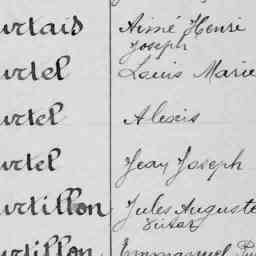 urtais Aimé Henri
Joseph
urtel Louis Marie
urtel Alexis
urtel Jean Joseph
urtillon Jules Auguste
urtillon Emmanuel